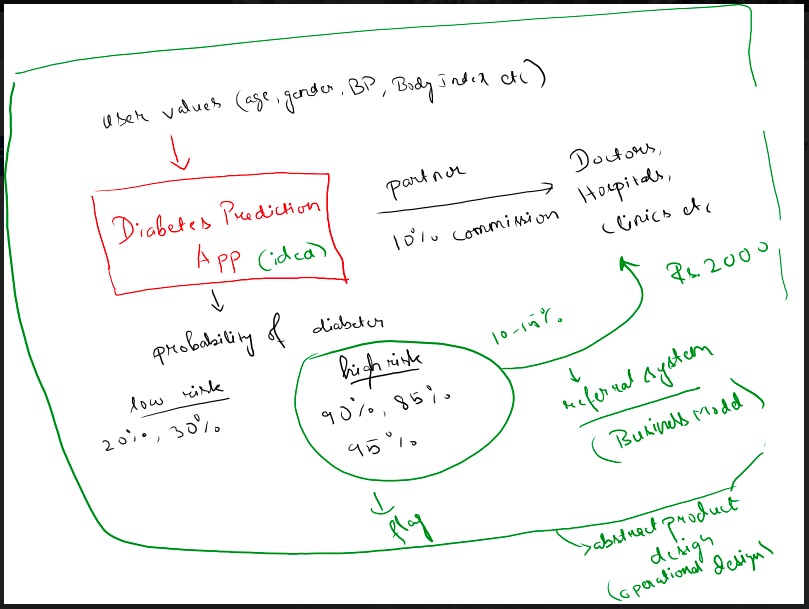 user values (age, gender, BP, Body Index etc)
Diabetes Prediction
App (idea)
partner
10% commission
Doctors,
Hospitals,
clinics etc
Rs. 2000
probability of diabetes
low risk
20%, 30%
high risk
90%, 85%
95%
flag
10-15%
referral system
(Business Model)
abstract product
design
(operational design)